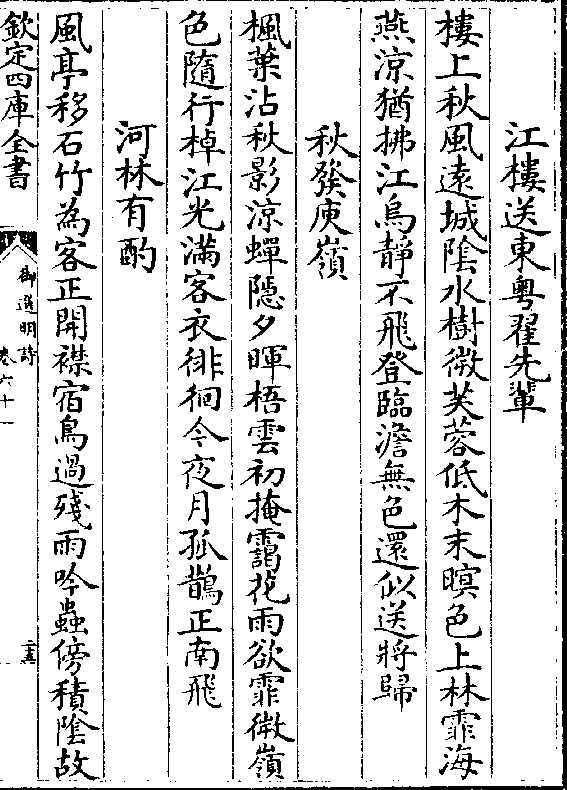 江樓送東粤翟先輩
樓上秋風遠城陰水樹微芙蓉低木末暝色上林霏海
燕涼猶拂江烏靜不飛登臨澹無色還似送將歸
秋發庾嶺
楓葉沾秋影涼蟬隱夕暉梧雲初掩靄花雨欲霏微嶺
色隨行棹江光滿客衣徘徊今夜月孤鵲正南飛
河林有酌
風亭移石竹為客正開襟宿鳥過殘雨吟蟲傍積陰故
欽定四庫全書
御選明詩
卷六十一